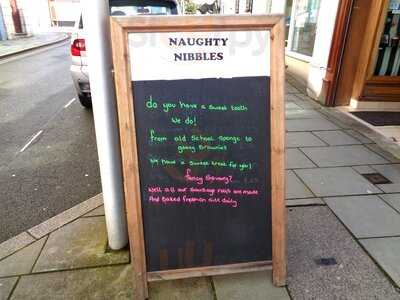 NAUGHTY
NIBBLES
do you have a sweet tooth
We do!
From old School sponge to
gooey Brownies
We have a sweet treat for you!
Fancy Savoury?
Well all our Sausage rolls are made
And Baked fresh on site daily